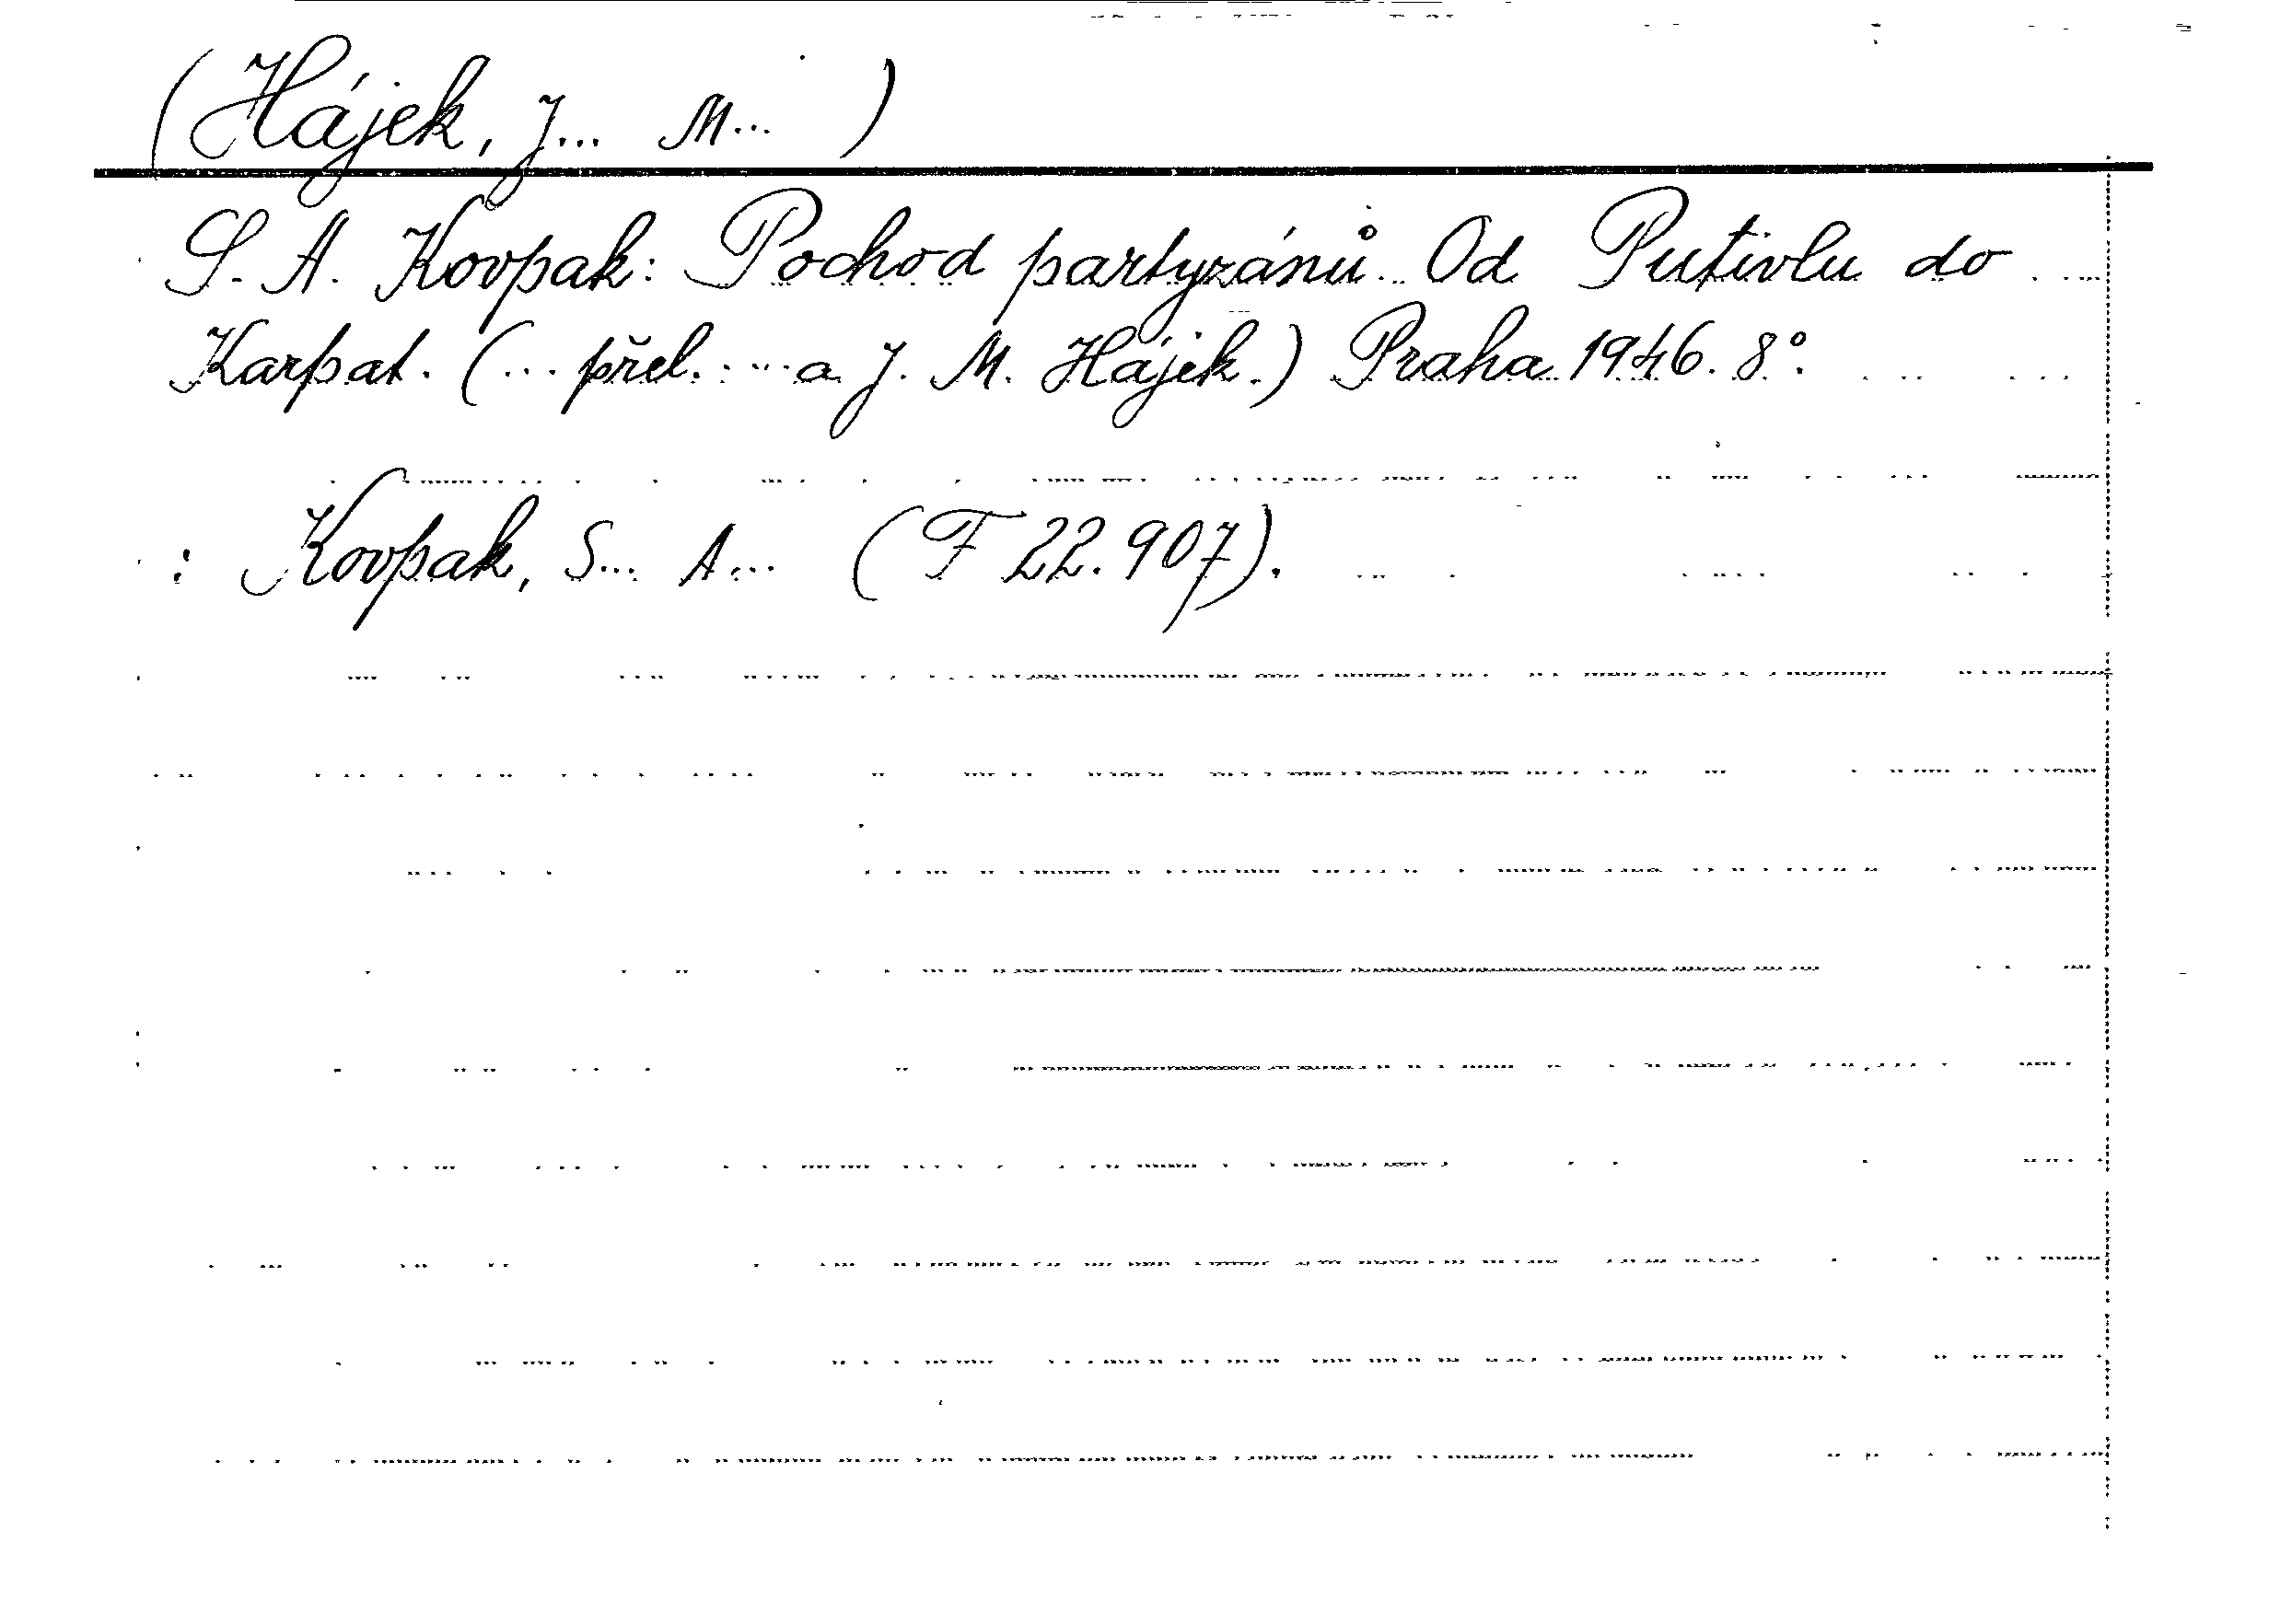 (Hájek, J... M... )
S. A. Kovpak: Pochod partyzánů. Od Putivlu do
Karpat. (... přel. ... a J. M. Hájek.) Praha 1946. 8°.
: Kovpak, S... A... (F 22.907).